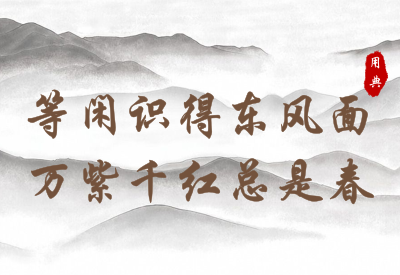 用典
等闲识得东风面
万紫千红总是春